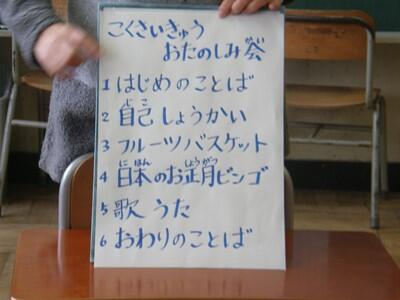 こくさいきゅう
おたのしみ会
1 はじめのことば
2 自己しょうかい
3 フルーツバスケット
4 日本のお正月ビンゴ
5 歌 うた
6 おわりのことば